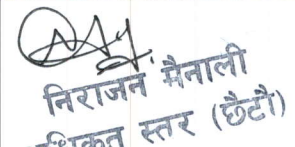 निराजन मैनाली
अधिकृत स्तर (छैटौं)